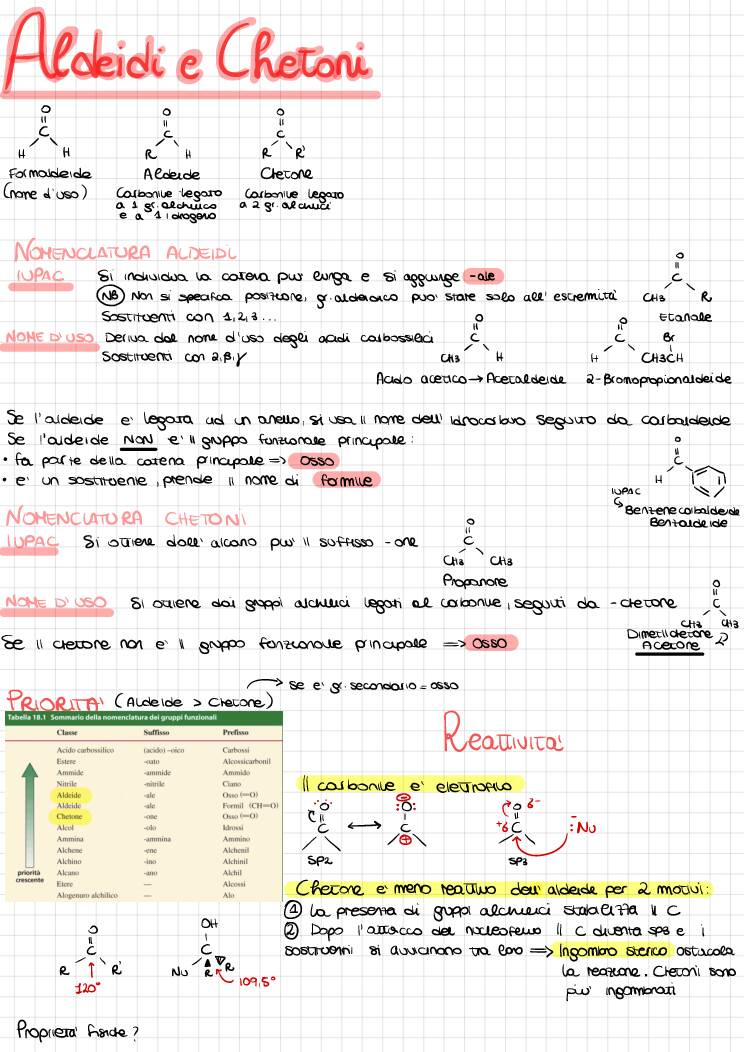 Aldeidi e Chetoni
O O O
C C C
H H R H R R'
Formaldeide Aldeide Chetone
(nome d'uso) Carbonile legato Carbonile legato
a 1 gr. alchilico a 2 gr. alchilici
e a 1 idrogeno
NOMENCLATURA ALDEIDI
IUPAC Si individua la catena più lunga e si aggiunge -ale
NB Non si specifica posizione, gr. aldeidico può stare solo all'estremità
Sostituenti con 1,2,3...
O
C
CH3 R
Etanale
NOME D'USO Deriva dal nome d'uso degli acidi carbossilici
Sostituenti con 2,β,γ
O
C
CH3 H
Acido acetico → Acetaldeide
O Br
C
H CH3CH
2-Bromopropionaldeide
Se l'aldeide è legata ad un anello, si usa il nome dell'idrocarburo seguito da carbaldeide
Se l'aldeide NON è il gruppo funzionale principale:
• fa parte della catena principale => OSSO
• è un sostituente, prende il nome di formile
O
C
H
IUPAC
Benzenecarbaldeide
Benzaldeide
NOMENCLATURA CHETONI
IUPAC Si ottiene dall'alcano più il suffisso -one
O
C
CH3 CH3
Propanone
NOME D'USO Si ottiene dai gruppi alchilici legati al carbonile, seguiti da -chetone
O
C
CH3 CH3
Dimetilchetone
Acetone
Se il chetone non è il gruppo funzionale principale => OSSO
PRIORITÀ (Aldeide > Chetone) → se è gr. secondario = OSSO
Tabella 18.1 Sommario della nomenclatura dei gruppi funzionali
Classe Suffisso Prefisso
Acido carbossilico (acido) –oico Carbossi
Estere -oato Alcossicarbonil
Ammide -ammide Ammido
Nitrile -nitrile Ciano
Aldeide -ale Osso (=O)
Aldeide -ale Formil (CH=O)
Chetone -one Osso (=O)
Alcol -olo Idrossi
Ammina -ammina Ammino
Alchene -ene Alchenil
Alchino -ino Alchinil
Alcano -ano Alchil
Etere — Alcossi
Alogenuro alchilico — Alo
priorità
crescente
Reattività
Il carbonile è elettrofilo
O O O δ-
C C +δ C :Nu
SP2 SP3
Chetone è meno reattivo dell'aldeide per 2 motivi:
1 La presenza di gruppi alchilici stabilizza il C
2 Dopo l'attacco del nucleofilo il C diventa sp3 e i
sostituenti si avvicinano tra loro => Ingombro sterico ostacola
la reazione. Chetoni sono
più ingombrati
O
C
R R'
120°
OH
C
Nu R R
109,5°
Proprietà fisiche?